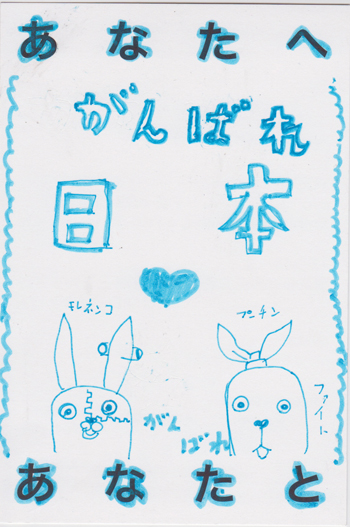 あなたへ
がんばれ
日本
キレネンコ
プーチン
ファイト
がんばれ
あなたと